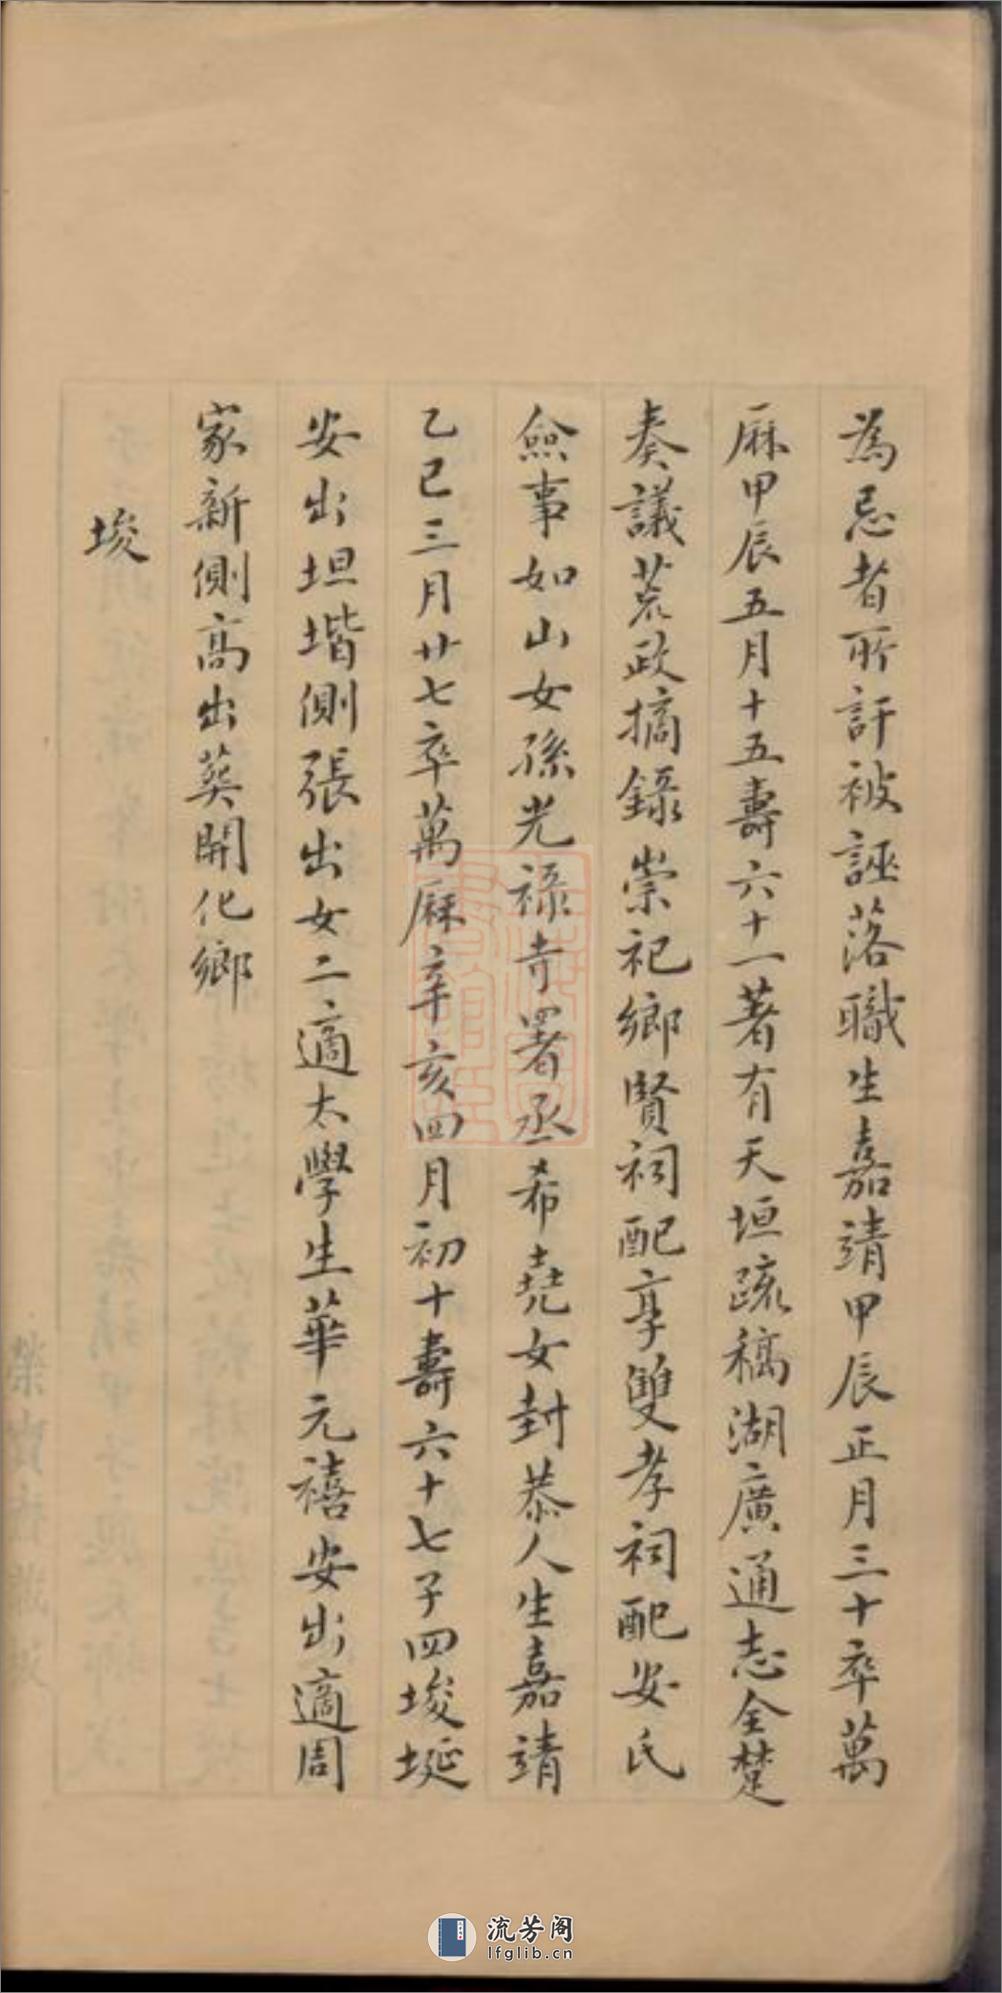 為忌者所訐被誣落職生嘉靖甲辰正月三十卒萬
厤甲辰五月十五壽六十一著有天垣疏稿湖廣通志全楚
奏議荒政摘錄崇祀鄉賢祠配享雙孝祠配安氏
僉事如山女孫光祿寺署丞希堯女封恭人生嘉靖
乙巳三月廿七卒萬厤辛亥四月初十壽六十七子四埈埏
安出坦堦側張出女二適太學生華元禧安出適周
家新側高出葵開化鄉
埈
流芳阁
lfglib.cn